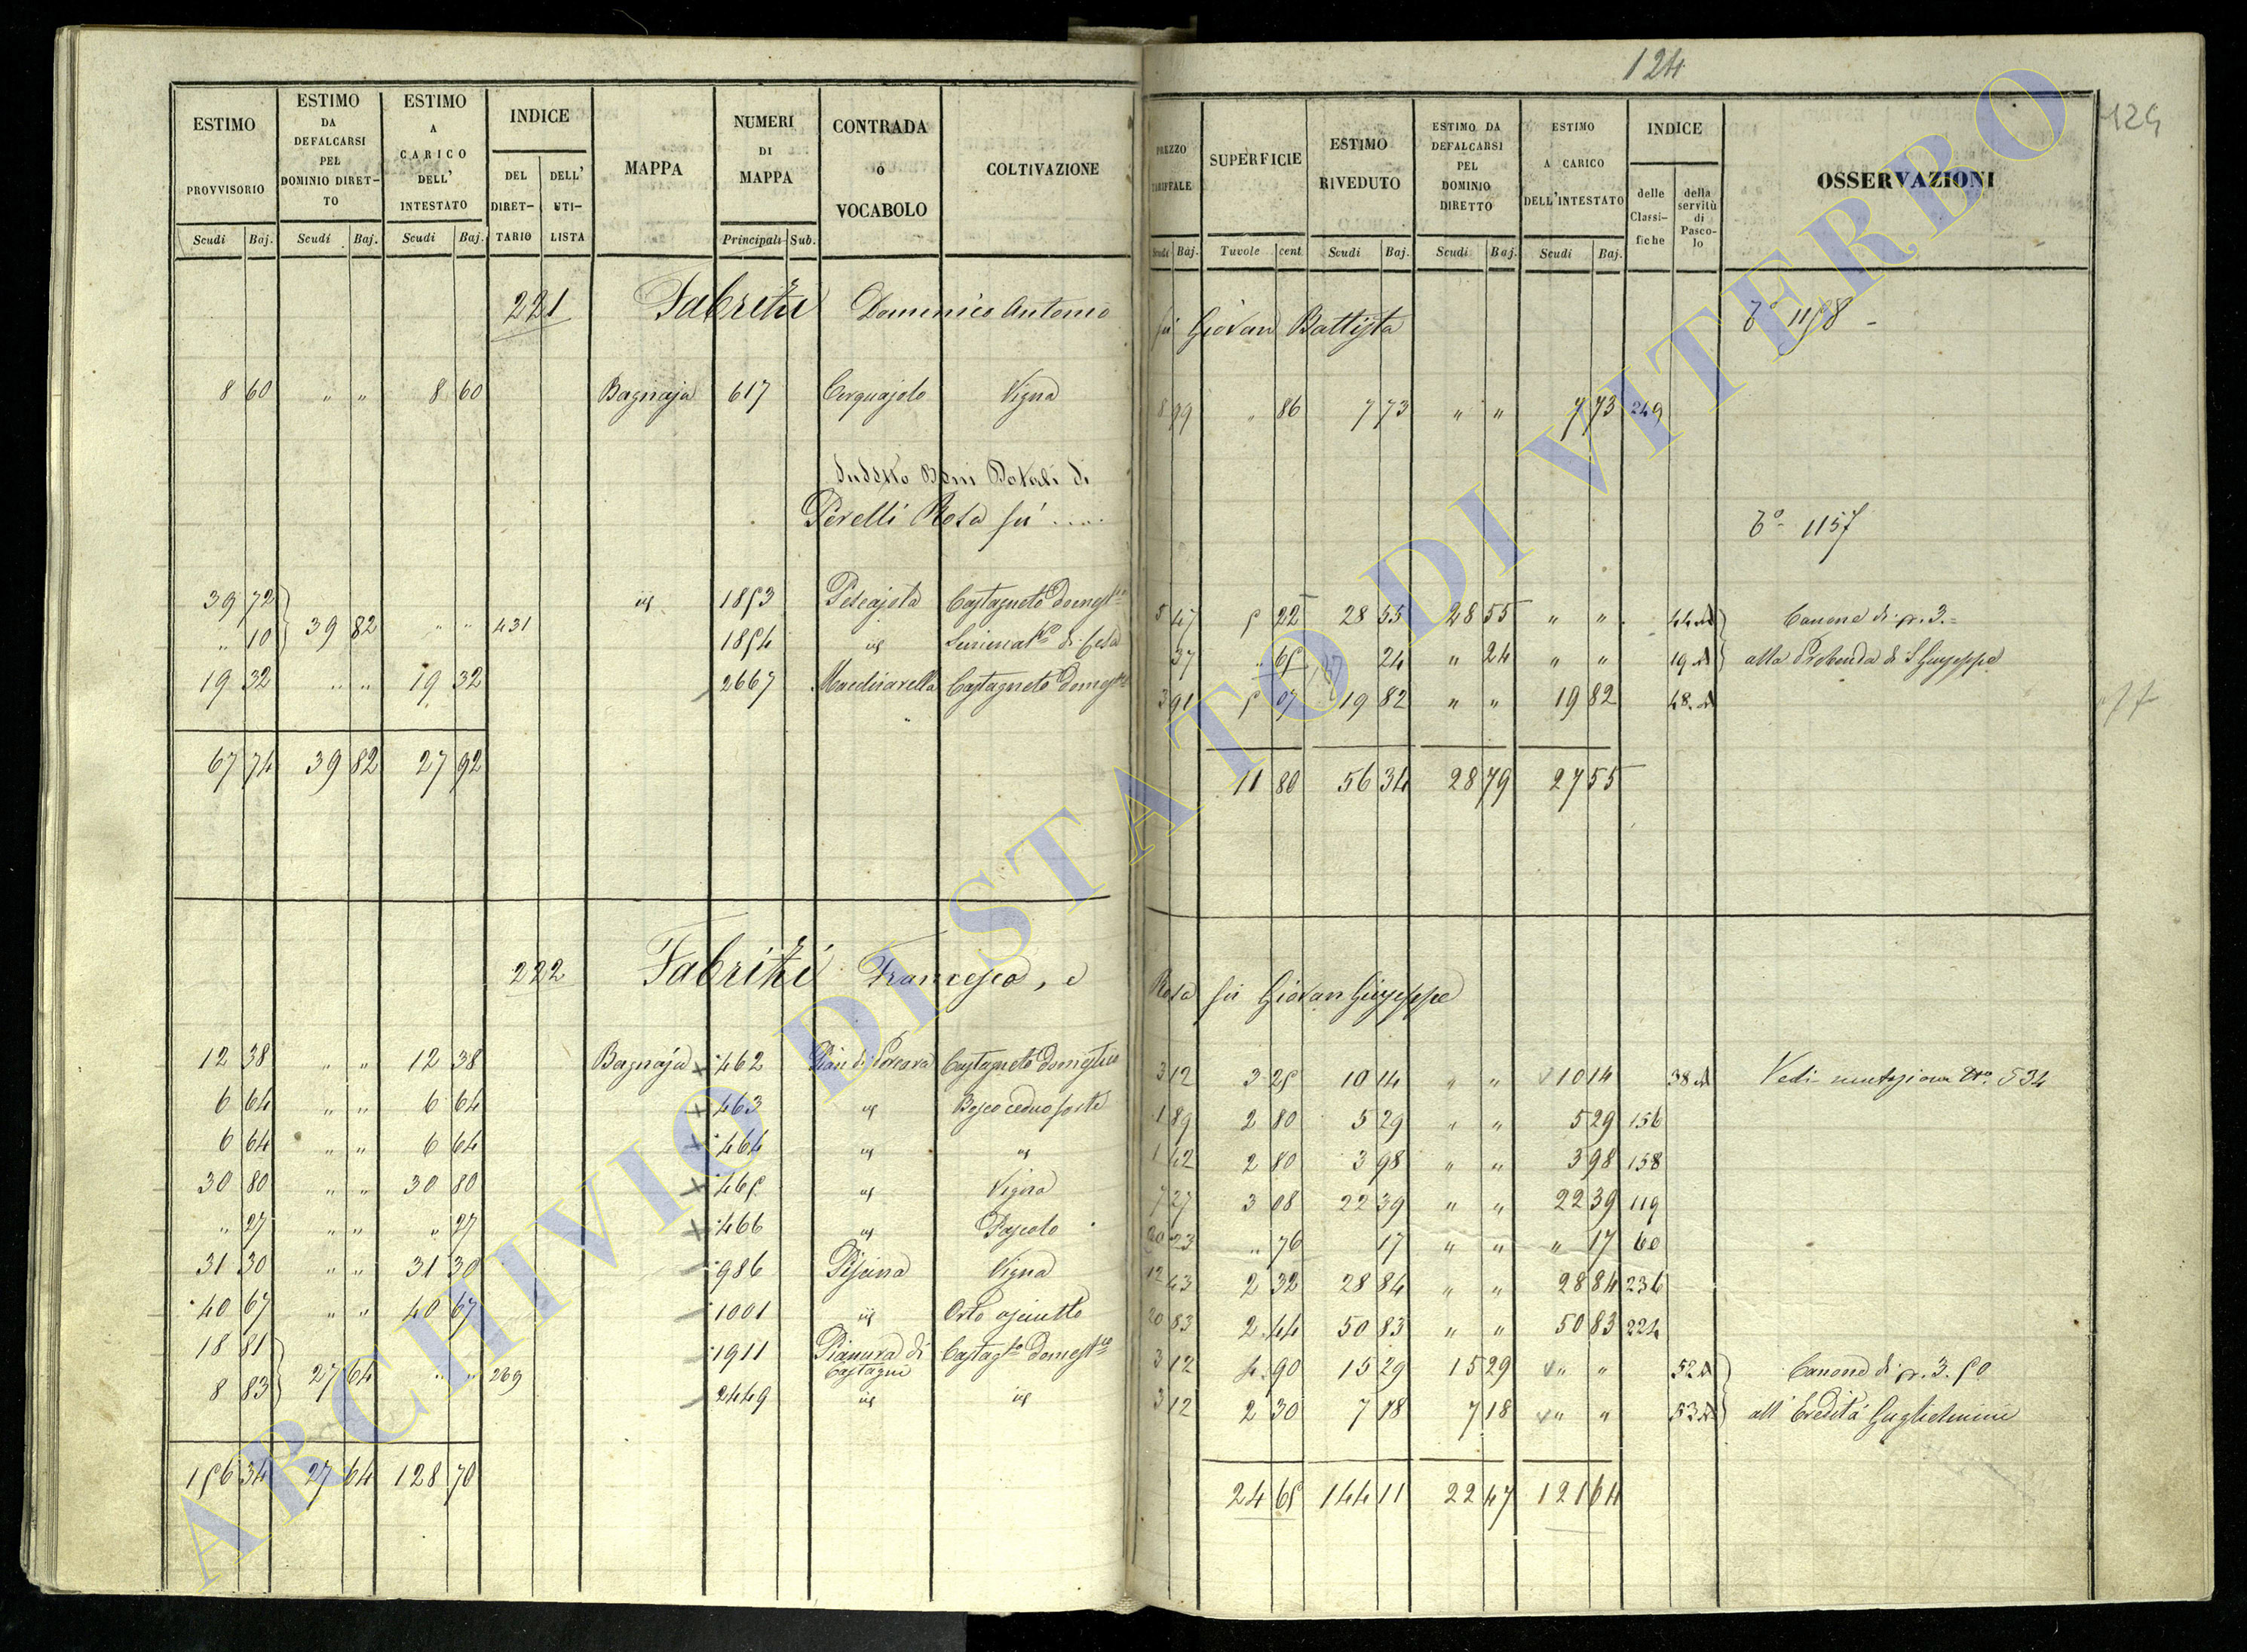 124
125
ESTIMO PROVVISORIO
ESTIMO DA DEFALCARSI PEL DOMINIO DIRET-TO
ESTIMO A CARICO DELL' INTESTATO
INDICE
DEL DIRET-TARIO
DELL' UTI-LISTA
MAPPA
NUMERI DI MAPPA
CONTRADA O VOCABOLO
COLTIVAZIONE
PREZZO TARIFFALE
SUPERFICIE
ESTIMO RIVEDUTO
ESTIMO DA DEFALCARSI PEL DOMINIO DIRETTO
ESTIMO A CARICO DELL'INTESTATO
INDICE
delle Classi-fiche
della servitù di Pasco-lo
OSSERVAZIONI
Scudi Baj. Scudi Baj. Scudi Baj. Principali Sub. Scudi Baj. Tavole cent. Scudi Baj. Scudi Baj. Scudi Baj.
221 Fabrizi Domenico Antonio fu Giovan Battista 1158
8 60 " " 8 60 Bagnaja 617 Cerquajolo Vigna 8 99 " 86 7 73 " " 7 73 249
Sudetto Beni Dotali di
Perelli Rosa fu ..... 1157
39 72 1853 Pescajola Castagneto Domest.co 5 47 5 22 28 55 28 55 " " 44 A Canone di sc. 3.=
" 10 39 82 " " 431 1854 37 " 65 24 " 24 " " 19 A alla Prebenda di S Giuseppe
19 32 " " 19 32 2667 Castagneto Domest.co 3 91 5 07 19 82 " " 19 82 48. A
67 74 39 82 27 92 11 80 56 34 28 79 27 55
222 Fabrizi Francesco, e Rosa fu Giovan Giuseppe
12 38 " " 12 38 Bagnaja 462 Castagneto Domestico 3 12 3 25 10 14 " " 10 14 38 A Vedi mutazione No. 534
6 64 " " 6 64 463 Bosco ceduo forte 1 89 2 80 5 29 " " 5 29 156
6 64 " " 6 64 464 1 42 2 80 3 98 " " 3 98 158
30 80 " " 30 80 465 Vigna 7 27 3 08 22 39 " " 22 39 119
" 27 " " " 27 466 Pascolo 23 " 76 17 " " " 17 60
31 30 " " 31 30 986 Piscina Vigna 12 43 2 32 28 84 " " 28 84 236
40 67 " " 40 67 1001 Orto asciutto 20 83 2 44 50 83 " " 50 83 224
18 81 1911 Pianura di Castagni Castag.to Domest.co 3 12 4 90 15 29 15 29 " " 52 A Canone di sc. 3. 50
8 83 27 64 " " 269 2449 3 12 2 30 7 18 7 18 " " 53 A all' Eredità Guglielmini
156 34 27 64 128 70 24 65 144 11 22 47 121 64
ARCHIVIO DI STATO DI VITERBO